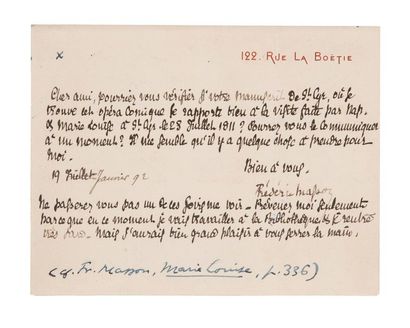 x
122. RUE LA BOËTIE
Cher ami, pourriez vous vérifier si votre manuscrit de St Cyr, où se
trouve cet opéra comique se rapporte bien à la visite faite par Nap.
& Marie Louise à St Cyr le 28 Juillet 1811? Pourrez vous le communiquer
à un moment? Il me semble qu'il y a quelque chose à prendre pour
moi.
Bien à vous.
19 Juillet Janvier 92
Frédéric Masson
Ne passerez vous pas un de ces jours me voir. Prévenez moi seulement
parce que en ce moment je vais travailler à la Bibliothèque & je rentre
très tard. Mais j'aurais bien grand plaisir à vous serrer la main.
(cf. Fr. Masson, Marie Louise, p. 336)